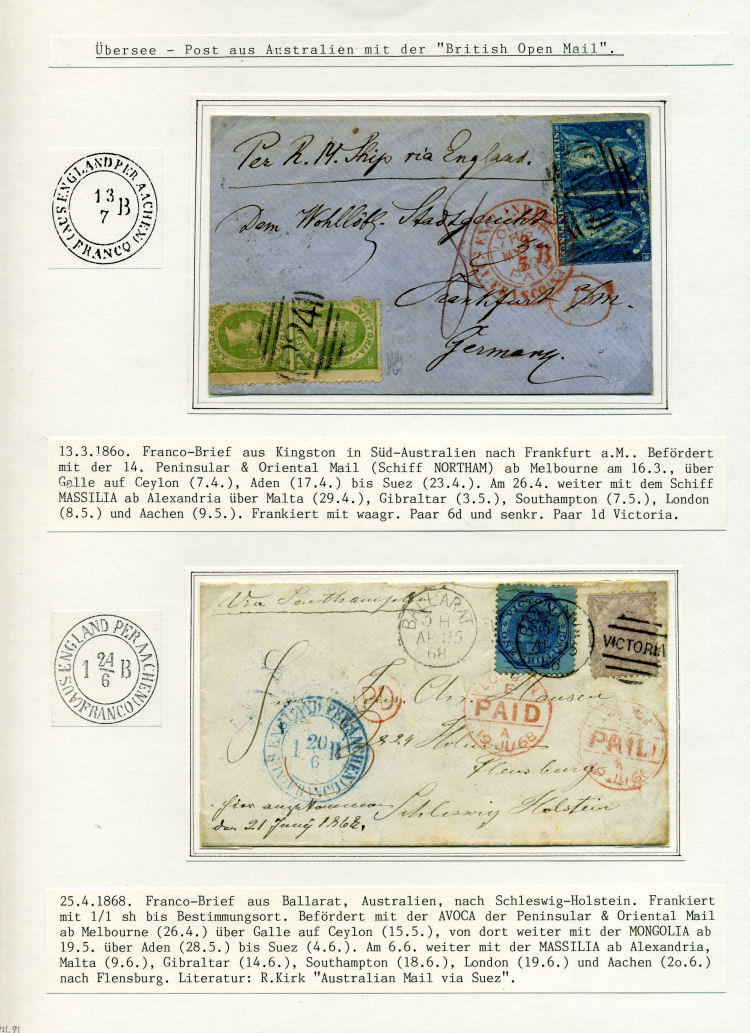 Übersee - Post aus Australien mit der "British Open Mail".
(AUS ENGLAND PER AACHEN)
13
7 B
FRANCO
Per R. M. Ship via England.
Dem Wohllöbl. Stadtgericht
zu
Frankfurt a/m.
Germany.
PAID
5 B
FRANCO
VICTORIA
224
13.3.186o. Franco-Brief aus Kingston in Süd-Australien nach Frankfurt a.M.. Befördert
mit der 14. Peninsular & Oriental Mail (Schiff NORTHAM) ab Melbourne am 16.3., über
Galle auf Ceylon (7.4.), Aden (17.4.) bis Suez (23.4.). Am 26.4. weiter mit dem Schiff
MASSILIA ab Alexandria über Malta (29.4.), Gibraltar (3.5.), Southampton (7.5.), London
(8.5.) und Aachen (9.5.). Frankiert mit waagr. Paar 6d und senkr. Paar 1d Victoria.
(AUS ENGLAND PER AACHEN)
1 24 B
6
FRANCO
Via Southampton
BALLARAT
3 H
AP 25
68
VICTORIA
PD
LONDON
PAID
19 JU 68
PAID
AUS ENGLAND PER AACHEN
1 20 B
6
FRANCO
Flensburg
Schleswig Holstein
hier angekommen
den 21 Juny 1868.
25.4.1868. Franco-Brief aus Ballarat, Australien, nach Schleswig-Holstein. Frankiert
mit 1/1 sh bis Bestimmungsort. Befördert mit der AVOCA der Peninsular & Oriental Mail
ab Melbourne (26.4.) über Galle auf Ceylon (15.5.), von dort weiter mit der MONGOLIA ab
19.5. über Aden (28.5.) bis Suez (4.6.). Am 6.6. weiter mit der MASSILIA ab Alexandria,
Malta (9.6.), Gibraltar (14.6.), Southampton (18.6.), London (19.6.) und Aachen (2o.6.)
nach Flensburg. Literatur: R.Kirk "Australian Mail via Suez".